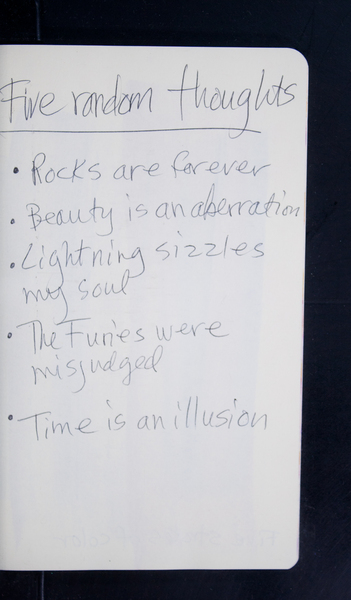 Five random thoughts
• Rocks are forever
• Beauty is an aberration
• Lightning sizzles
my soul
• The Furies were
misjudged
• Time is an illusion